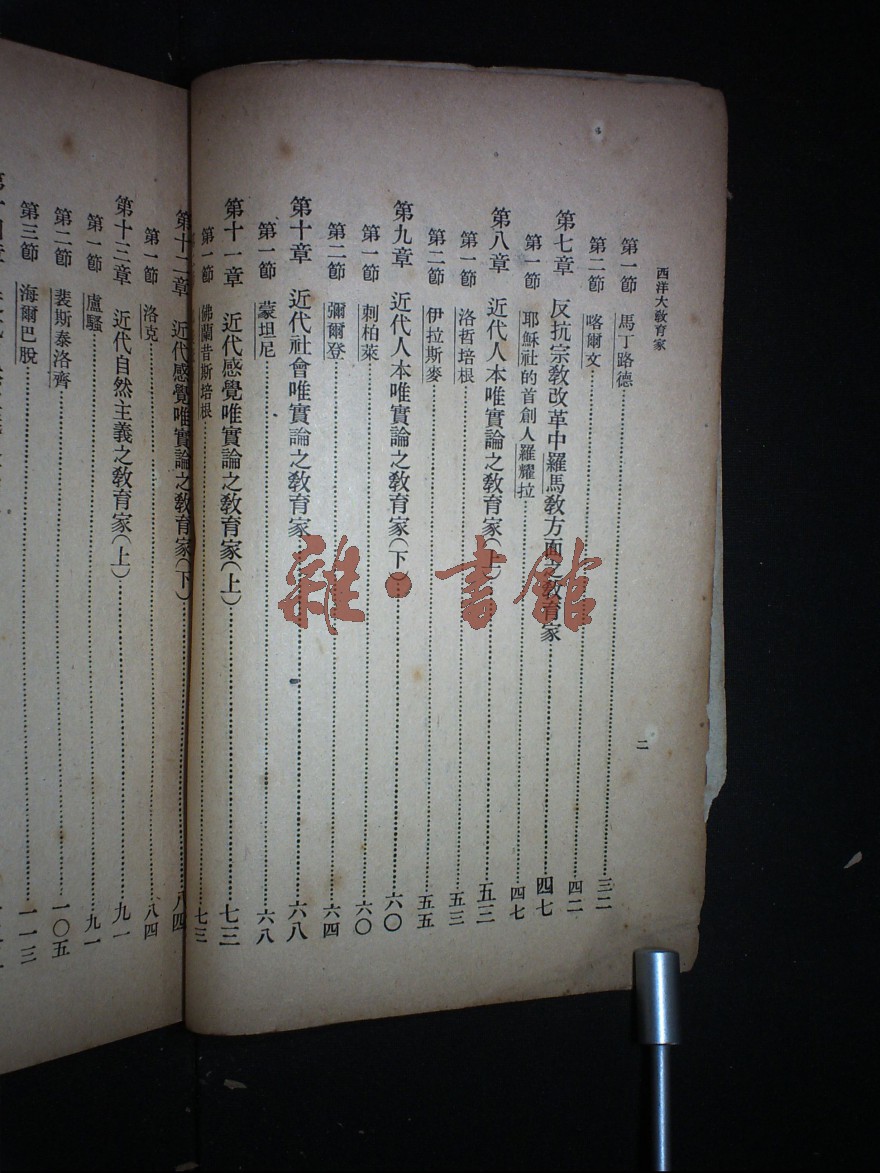 西洋大教育家
二
第一節 馬丁路德……三二
第二節 喀爾文……四二
第七章 反抗宗教改革中羅馬教方面之教育家……四七
第一節 耶穌社的首創人羅耀拉……四七
第八章 近代人本唯實論之教育家(上)……五三
第一節 洛哲培根……五三
第二節 伊拉斯麥……五五
第九章 近代人本唯實論之教育家(下)……六〇
第一節 刺柏萊……六〇
第二節 彌爾登……六四
第十章 近代社會唯實論之教育家……六八
第一節 蒙坦尼……六八
第十一章 近代感覺唯實論之教育家(上)……七三
第一節 佛蘭昔斯培根……七三
第十二章 近代感覺唯實論之教育家(下)……八四
第一節 洛克……八四
第十三章 近代自然主義之教育家(上)……九一
第一節 盧騷……九一
第二節 裴斯泰洛齊……一〇五
第三節 海爾巴脫……一一三
雜·書館